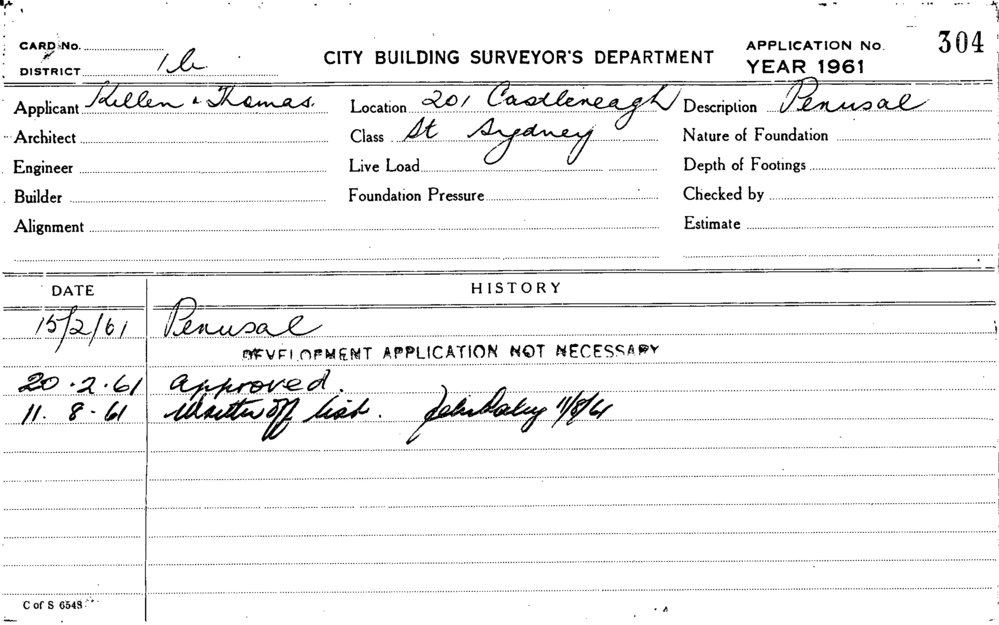 CARD No.
DISTRICT
CITY BUILDING SURVEYOR'S DEPARTMENT
APPLICATION No. 304
YEAR 1961
Applicant Killen & Thomas.
Location 201 Castlereagh
Description Perusal
Architect
Class St Sydney
Nature of Foundation
Engineer
Live Load
Depth of Footings
Builder
Foundation Pressure
Checked by
Alignment
Estimate
DATE HISTORY
15/2/61 Perusal
DEVELOPMENT APPLICATION NOT NECESSARY
20.2.61 approved.
11.8.61 Written off list. 11/8/61
C of S 6548